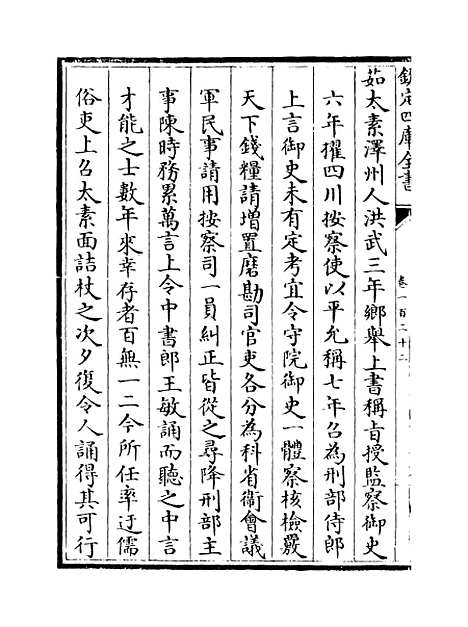 欽定四庫全書
卷一百二十二
茹太素澤州人洪武三年鄉舉上書稱旨授監察御史
六年擢四川按察使以平允稱七年召為刑部侍郎
上言御史未有定考宜令守院御史一體察核檢覈
天下錢糧請增置磨勘司官吏各分為科省衞會議
軍民事請用按察司一員糾正皆從之尋降刑部主
事陳時務累萬言上令中書郎王敏誦而聽之中言
才能之士數年來幸存者百無一二今所任率迂儒
俗吏上召太素面詰杖之次夕復令人誦得其可行